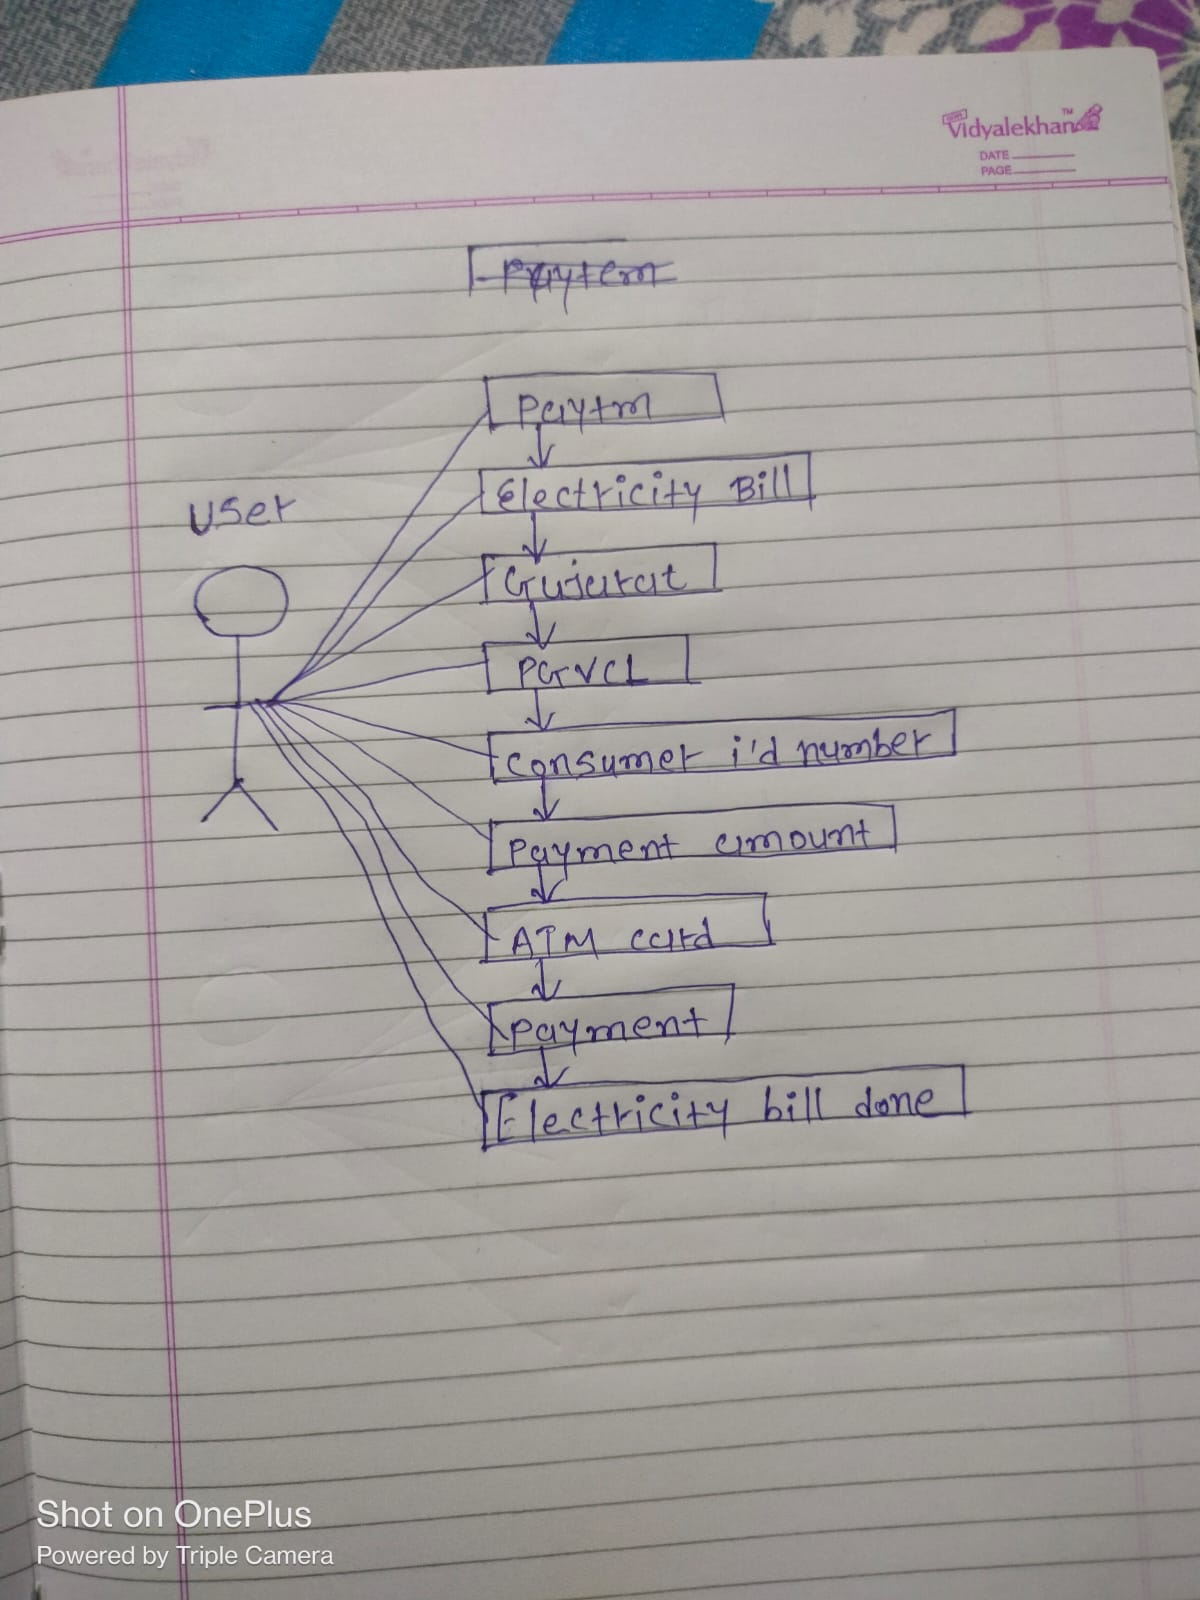 Vidyalekhan™
DATE
PAGE
Paytem
Paytm
Electricity Bill
User
Gujarat
PGVCL
Consumer i'd number
Payment amount
ATM card
Payment
Electricity bill done
Shot on OnePlus
Powered by Triple Camera